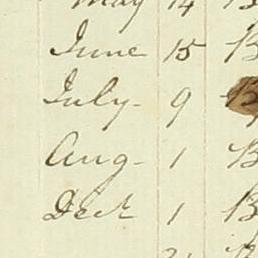 May 14 B
June 15 B
July- 9 B
Aug- 1 B
Dect 1 B